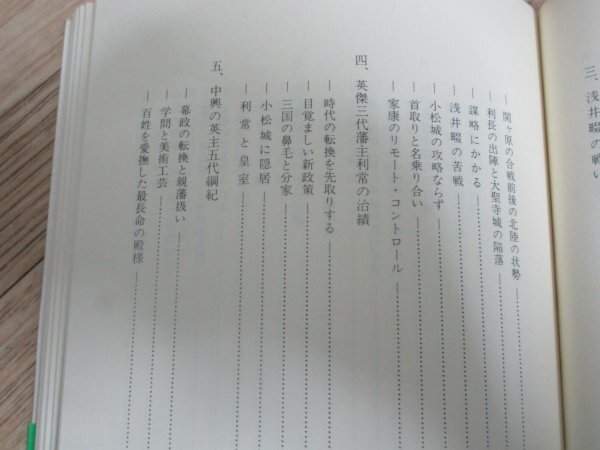 三、浅井畷の戦い
― 関ヶ原の合戦前後の北陸の状勢 ―
― 利長の出陣と大聖寺城の陥落
― 謀略にかかる
― 浅井畷の苦戦
― 小松城の攻略ならず
― 首取りと名乗り合い
― 家康のリモート・コントロール
四、英傑三代藩主利常の治績
― 時代の転換を先取りする
― 目覚ましい新政策
― 三国の鼻毛と分家
― 小松城に隠居
― 利常と皇室
五、中興の英主五代綱紀
― 幕政の転換と親藩扱い
― 学問と美術工芸
― 百姓を愛撫した最長命の殿様